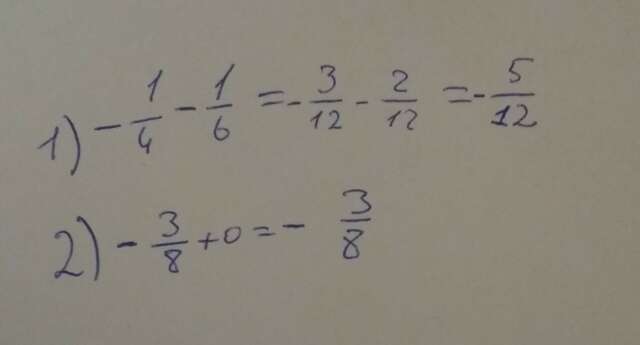 1) - 1/4 - 1/6 = - 3/12 - 2/12 = - 5/12
2) - 3/8 + 0 = - 3/8